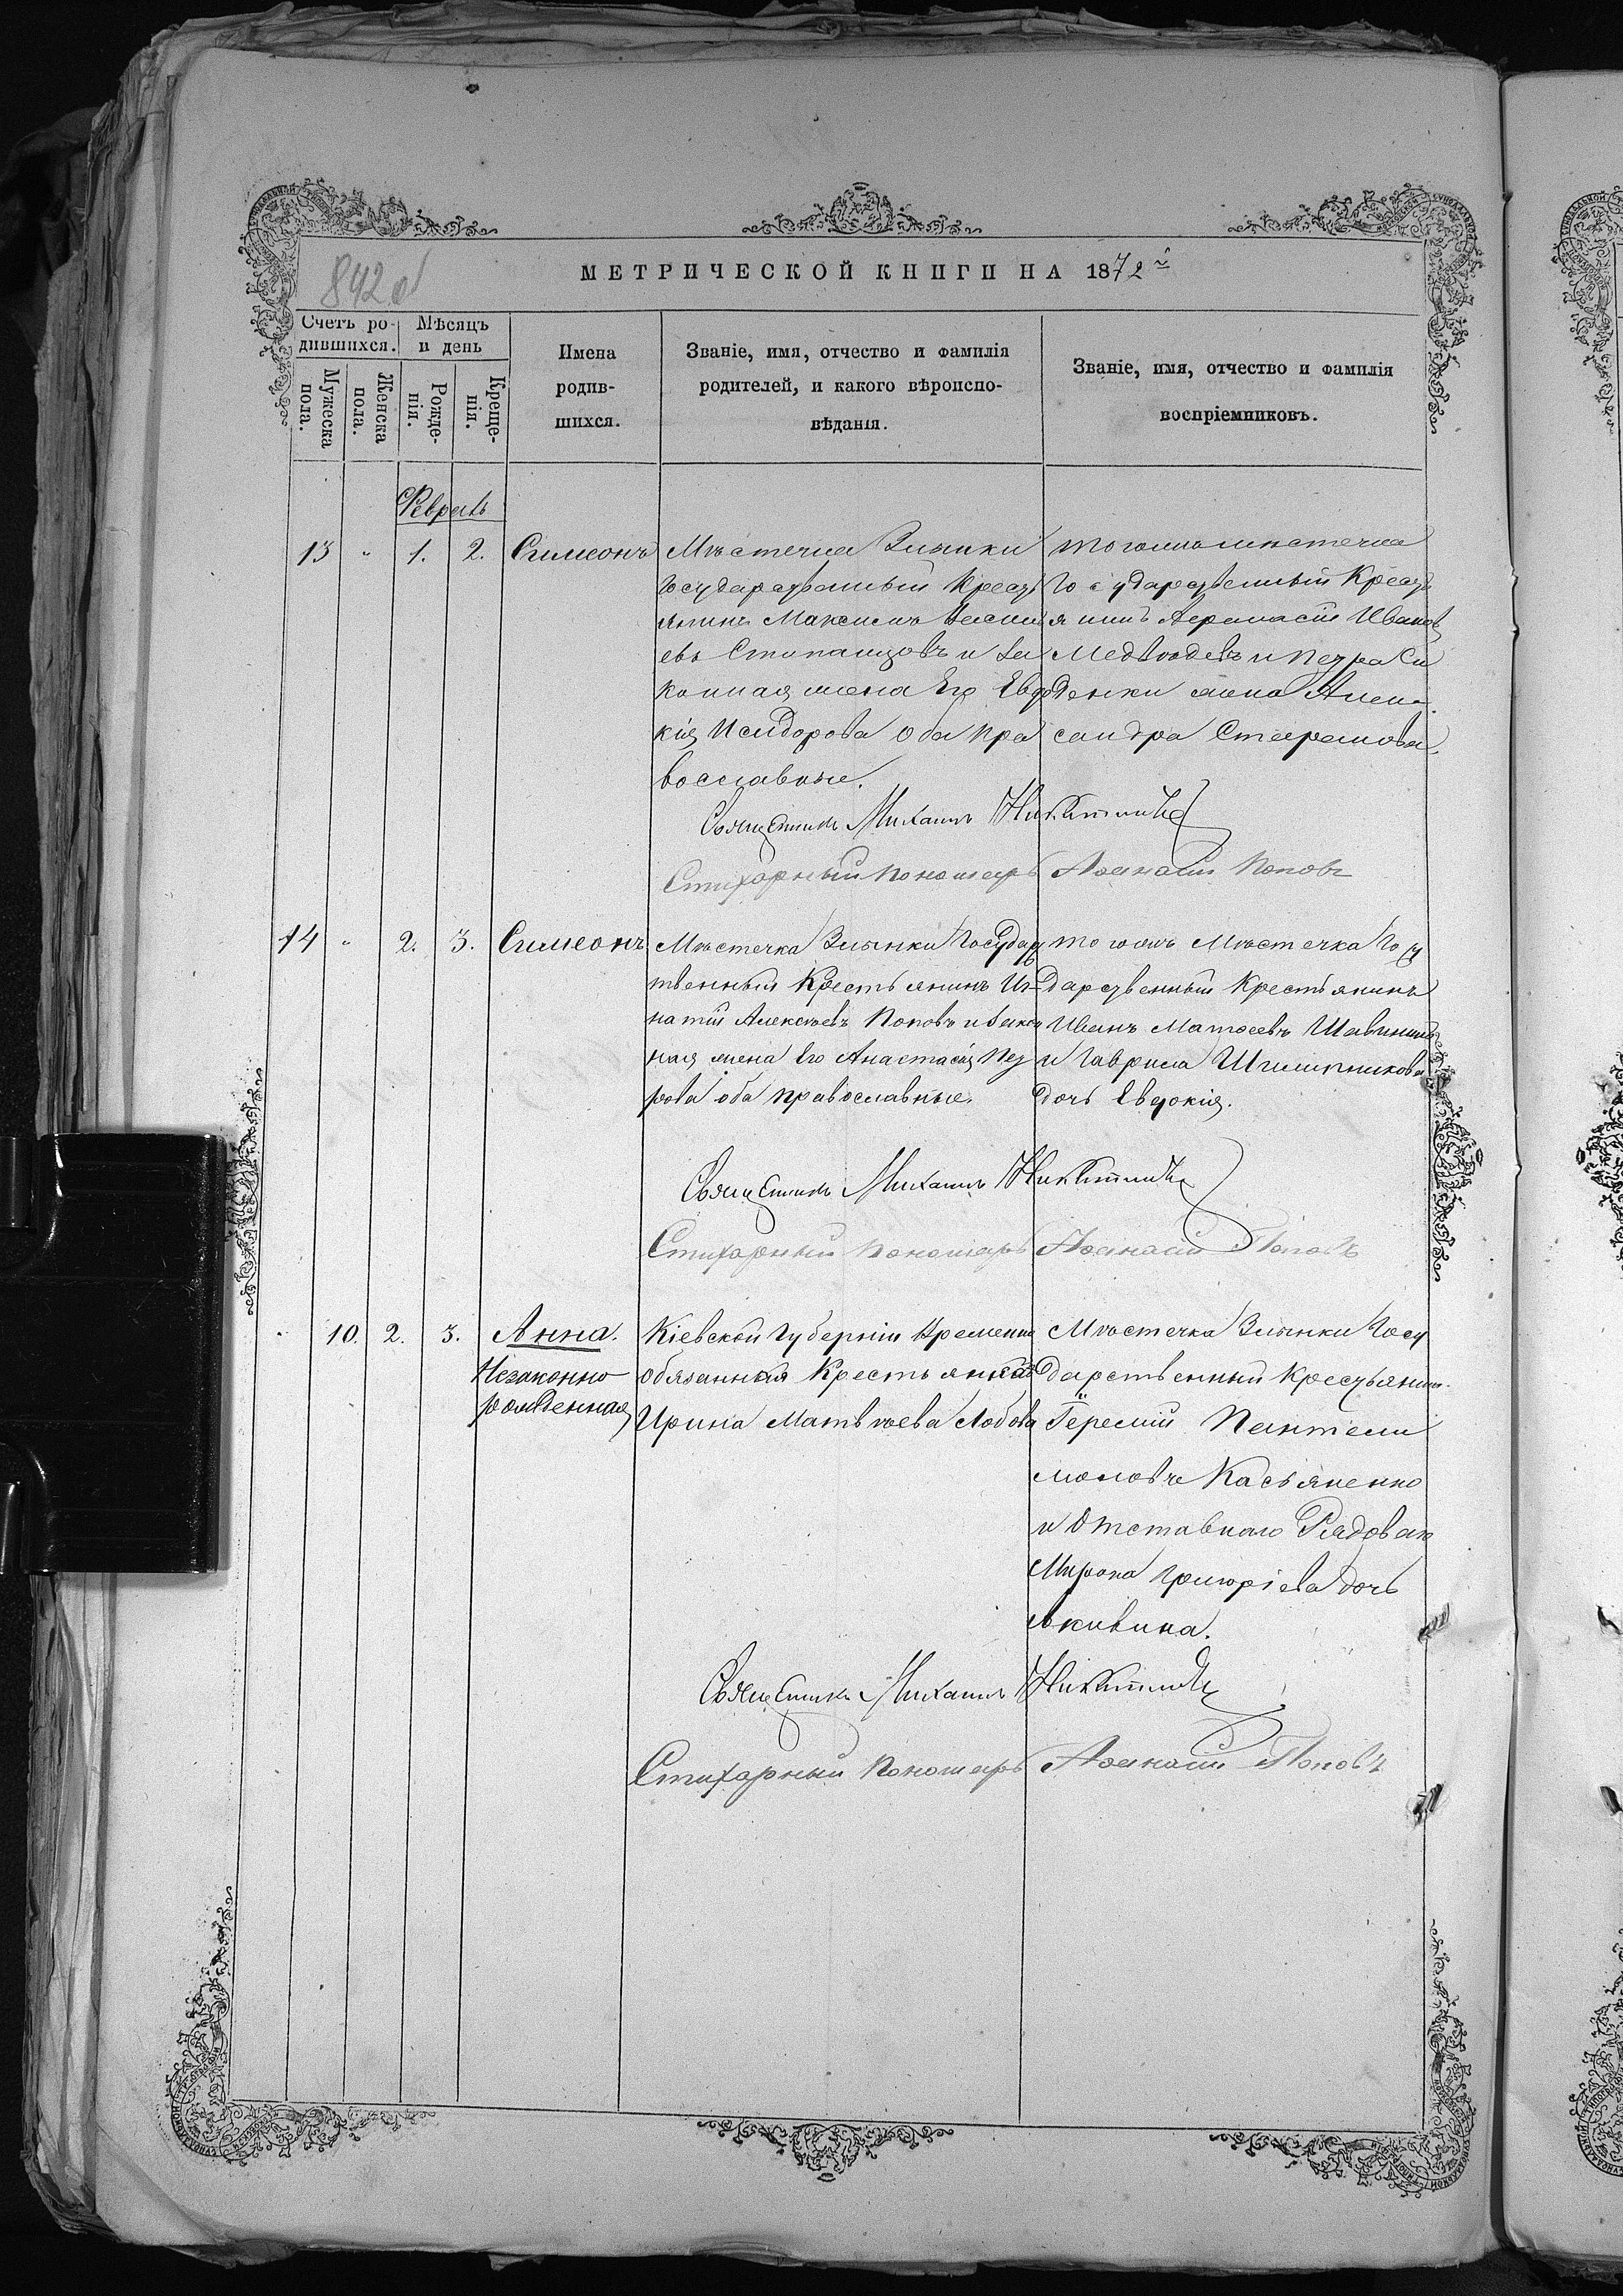 842 об
МЕТРИЧЕСКОЙ КНИГИ НА 1872й
Счетъ ро-
дившихся.
Мѣсяцъ
и день
Мужеска
пола.
Женска
пола.
Рожде-
нія.
Креще-
нія.
Имена
родив-
шихся.
Званіе, имя, отчество и фамилія
родителей, и какого вѣроиспо-
вѣданія.
Званіе, имя, отчество и фамилія
воспріемниковъ.
Февраль
13 " 1. 2. Симеонъ
Мѣстечка Злынки
Государственный Кресть
янинъ Максимъ
евъ и за
конная жена Его Евдо
кія Исидорова оба пра
вославные.
того же мѣстечка
Государственный Кресть
янинъ Афанасій Иванов
Медвѣдевъ и Петра Си
денки жена Алек-
сандра Стефанова.
Священникъ Михаилъ Никитинъ
Стихарный Пономарь Афанасій Поповъ
14 " 2. 3. Симеонъ
Мѣстечка Злынки Государс
твенный Крестьянинъ Иг-
натій Алексѣевъ Поповъ и закон
ная жена Его Анастасія Пет
рова оба православные.
того же Мѣстечка Госу
дарственный Крестьянинъ
Иванъ Матѳеевъ
и Гавріила
дочь Евдокія.
Священникъ Михаилъ Никитинъ
Стихарный Пономарь Афанасій Поповъ
" 10. 2. 3. Анна.
Незаконно
рожденная
Кіевской Губерніи Временно
обязанная Крестьянка
Ирина Матвѣева Лобова
Мѣстечка Злынки Госу
дарственный Крестьянин
Іеремій Пантели
моновъ Касьяненко
и Отставнаго Рядоваго
Мирона Григоріева дочь
Акилина.
Священникъ Михаилъ Никитинъ
Стихарный Пономарь Афанасій Поповъ